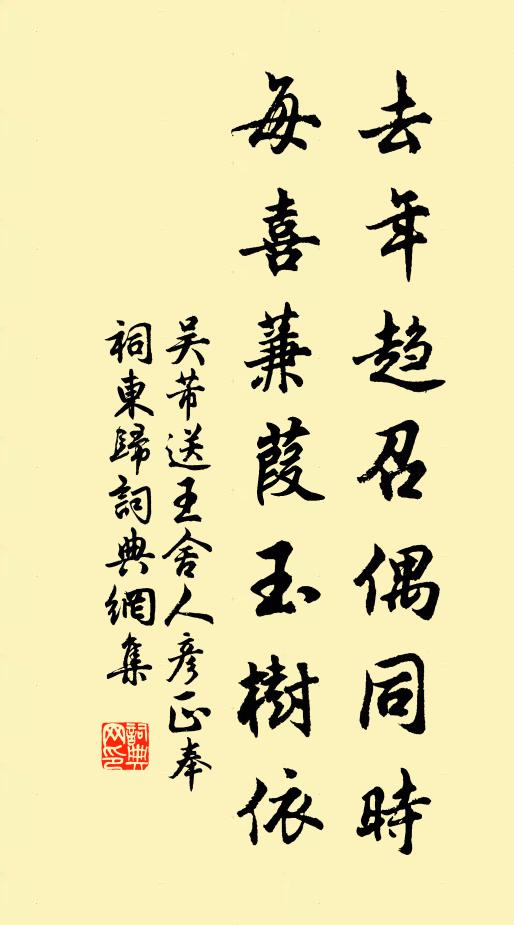 去年趨召偶同時
每喜蒹葭玉樹依
吴芾送王舍人彥正奉
祠東歸詞典網集
詞典
网印